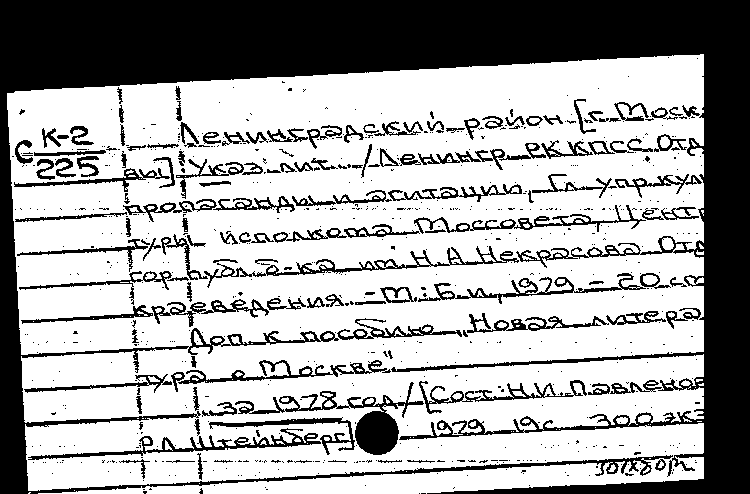 С К-2
225
Ленинградский район [г. Моск
вы]. Указ. лит. /Ленингр. РК КПСС. Отд
пропаганды и агитации, Гл. упр. куль
туры исполкома Моссовета, Центр
гор. публ. б-ка им. Н.А. Некрасова. Отд
краеведения. - М.: Б. и., 1979. - 20 см
Доп. к пособию „Новая литера
тура о Москве".
за 1978 год/[Сост.: Н.И. Павленов
Р.Л. Штейнберг] 1979 19 с. 300 экз